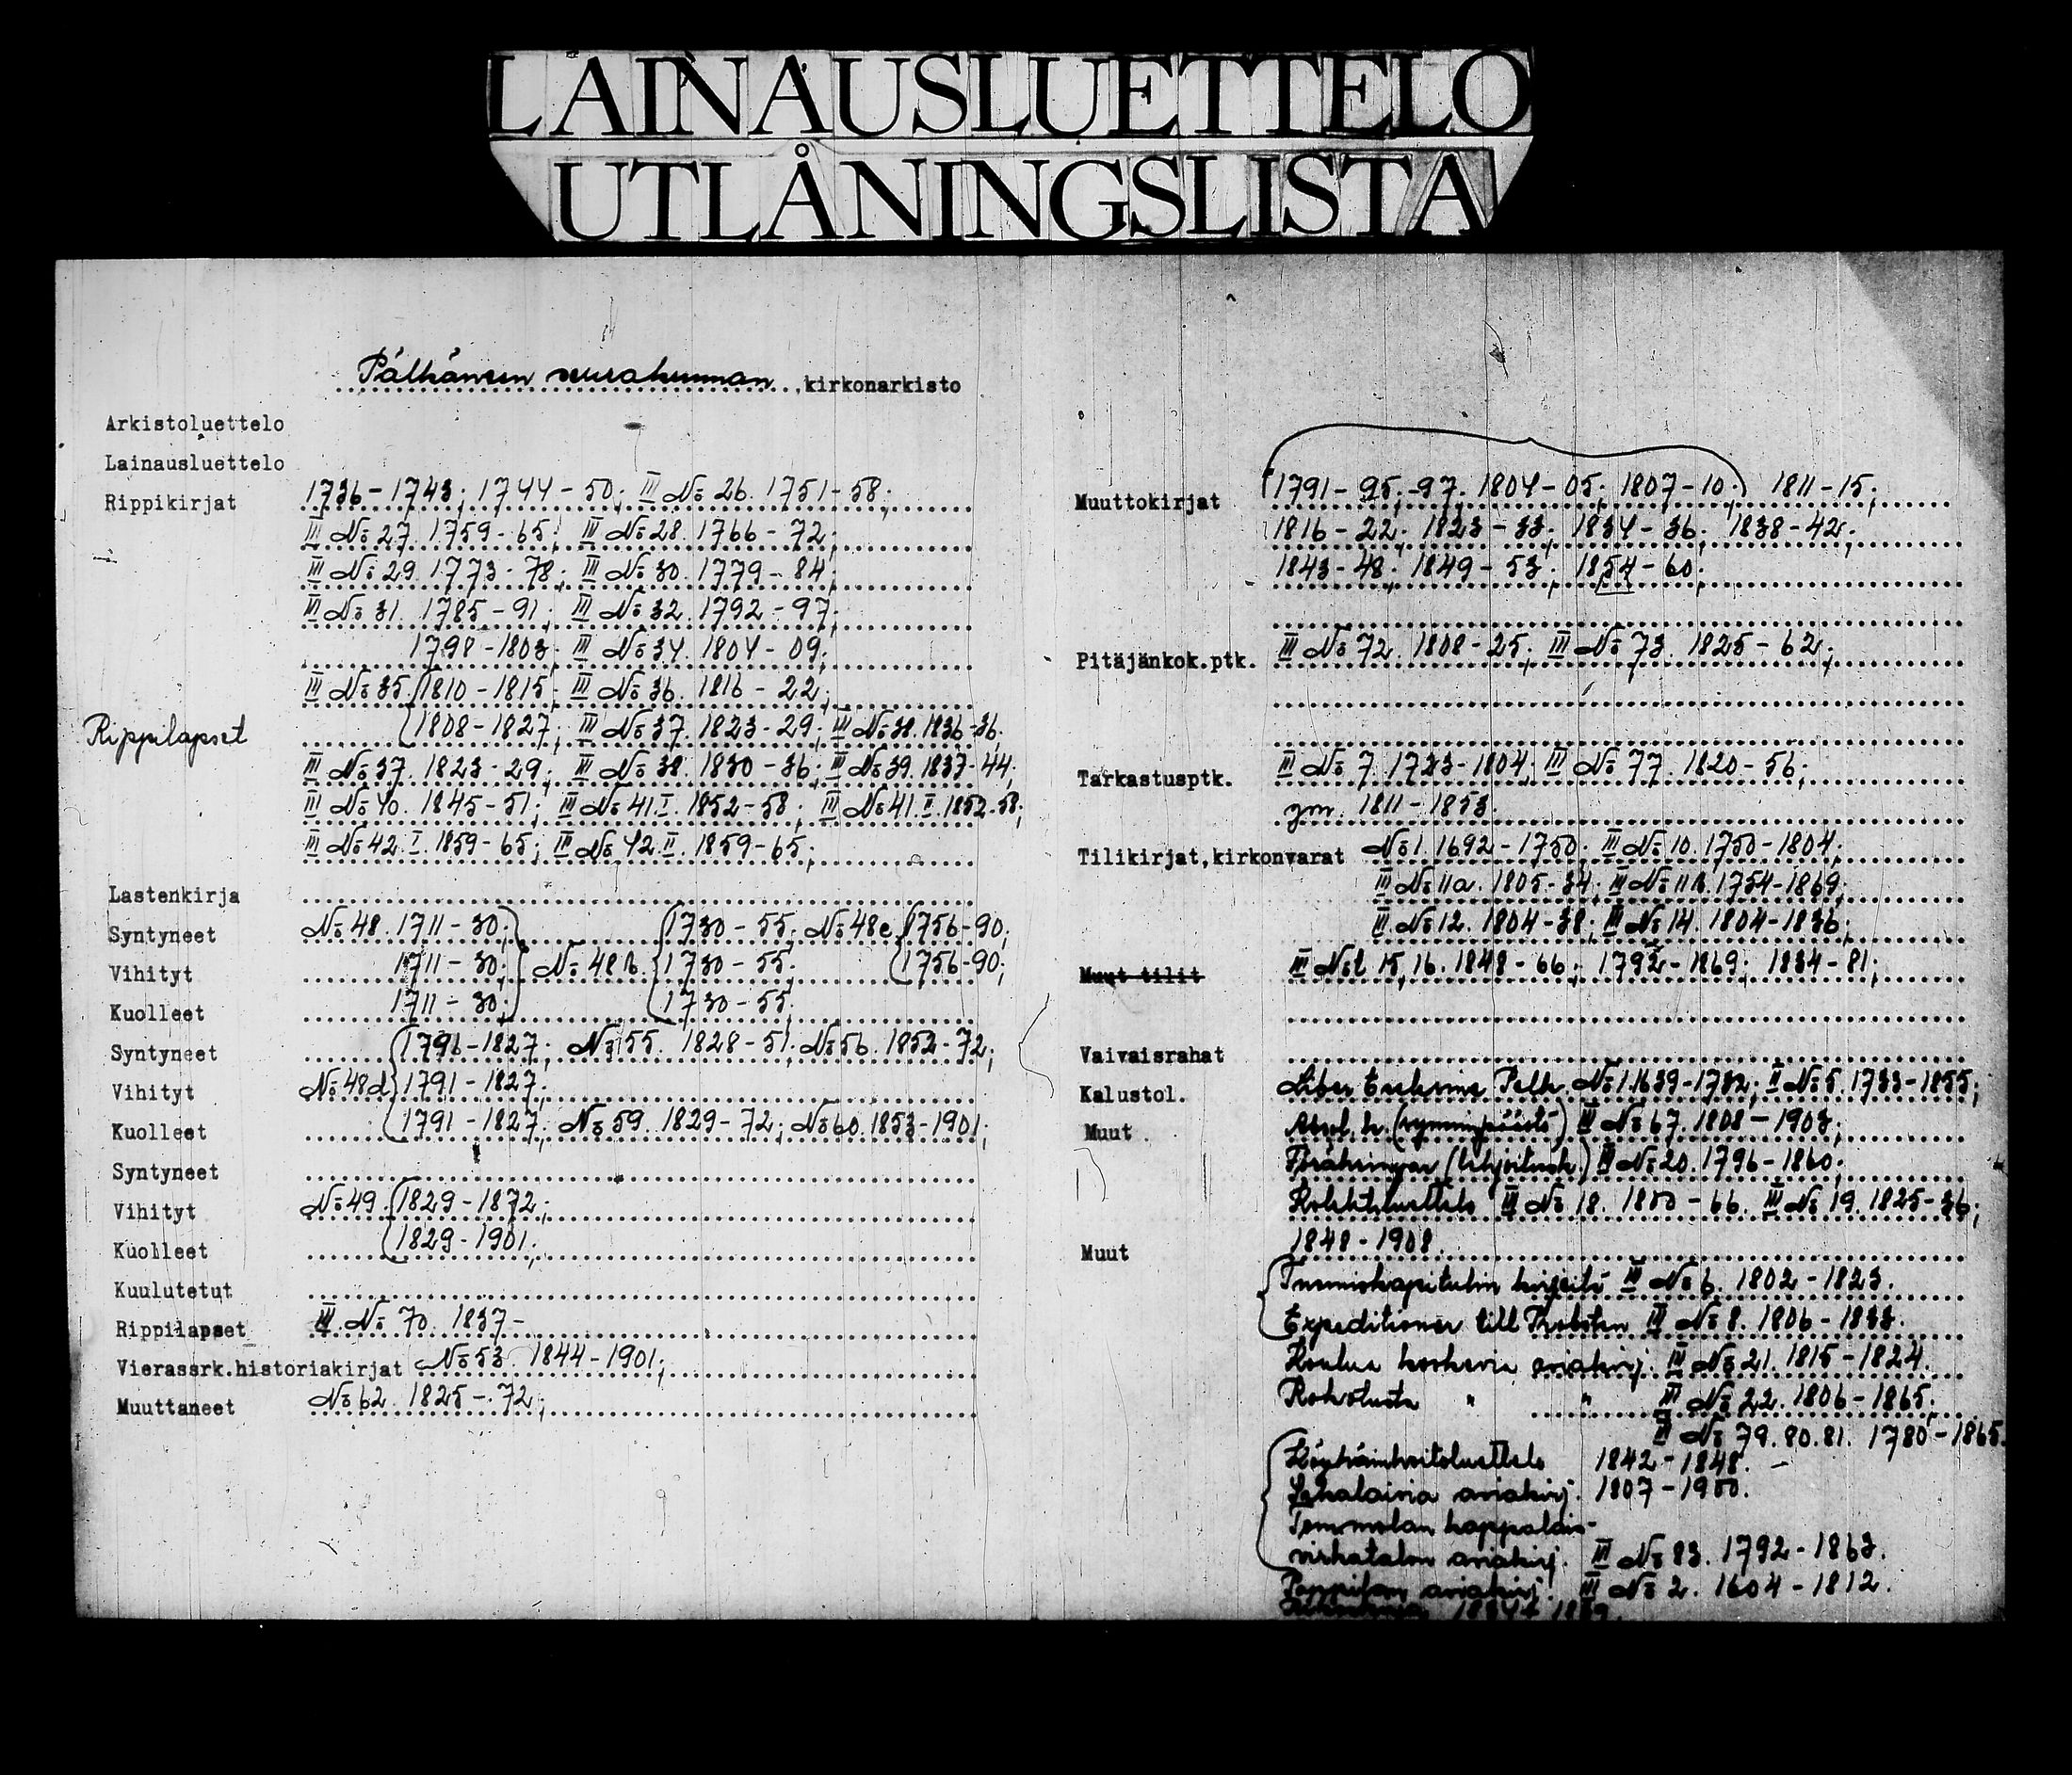 LAINAUSLUETTELO
UTLÅNINGSLISTA
Pälkäneen seurakunnan kirkonarkisto
Arkistoluettelo
Lainausluettelo
Rippikirjat 1736-1743; 1744-50; III No 26. 1751-58;
III No 27. 1759-65; III No 28. 1766-72;
III No 29. 1773-78; III No 30. 1779-84;
III No 31. 1785-91; III No 32. 1792-97;
1798-1803; III No 34. 1804-09;
III No 35. 1810-1815; III No 36. 1816-22;
Rippilapset 1808-1827; III No 37. 1823-29; III No 38. 1836-36.
III No 37. 1823-29; III No 38. 1830-36; III No 39. 1837-44;
III No 40. 1845-51; III No 41.I. 1852-58; III No 41.II. 1852-58;
III No 42.I. 1859-65; III No 42.II. 1859-65;
Lastenkirja
Syntyneet No 48. 1711-30; 1730-55; No 48c 1756-90;
Vihityt 1711-30; No 48b. 1730-55; 1756-90;
Kuolleet 1711-30; 1730-55;
Syntyneet 1796-1827; No 55. 1828-51; No 56. 1852-72;
Vihityt No 48d 1791-1827;
Kuolleet 1791-1827; No 59. 1829-72; No 60. 1853-1901;
Syntyneet
Vihityt No 49. 1829-1872;
Kuolleet 1829-1901;
Kuulutetut
Rippilapset III No 70. 1837-
Vierassrk.historiakirjat No 53. 1844-1901;
Muuttaneet No 62. 1825-72;
Muuttokirjat 1791-95; -97; 1804-05; 1807-10; 1811-15;
1816-22; 1823-33; 1834-36; 1838-42;
1843-48; 1849-53; 1854-60;
Pitäjänkok.ptk. III No 72. 1808-25; III No 73. 1825-62;
Tarkastusptk. III No 7. 1723-1804; III No 77. 1820-56;
ym. 1811-1853.
Tilikirjat,kirkonvarat No 1. 1692-1750; III No 10. 1750-1804;
III No 11a. 1805-34; III No 11b. 1754-1869;
III No 12. 1804-38; III No 14. 1804-1836;
Muut tilit III No 15, 16. 1848-66; 1792-1869; 1834-81;
Vaivaisrahat
Kalustol. Liber Ecclesiae Pelk. No 1. 1639-1732; II No 5. 1733-1855;
Muut Absol. k. (synninpäästö) III No 67. 1808-1903;
III No 20. 1796-1860;
Kolehtiluettelo III No 18. 1800-66. III No 19. 1825-36;
Muut 1848-1908
Tuomiokapitulin kirjeitä III No 6. 1802-1823.
Expeditioner till Probsten III No 8. 1806-1833.
Koulua koskevia asiakirj. III No 21. 1815-1824.
Rokotusta " " III No 22. 1806-1865;
II No 79. 80. 81. 1780-1865.
Köyhäinhoitoluettelo 1842-1848.
Sekalaisia asiakirj. 1807-1900.
Tommolan kappalais-
virkatalon asiakirj. III No 83. 1792-1863.
Pappilan asiakirj. III No 2. 1604-1812.